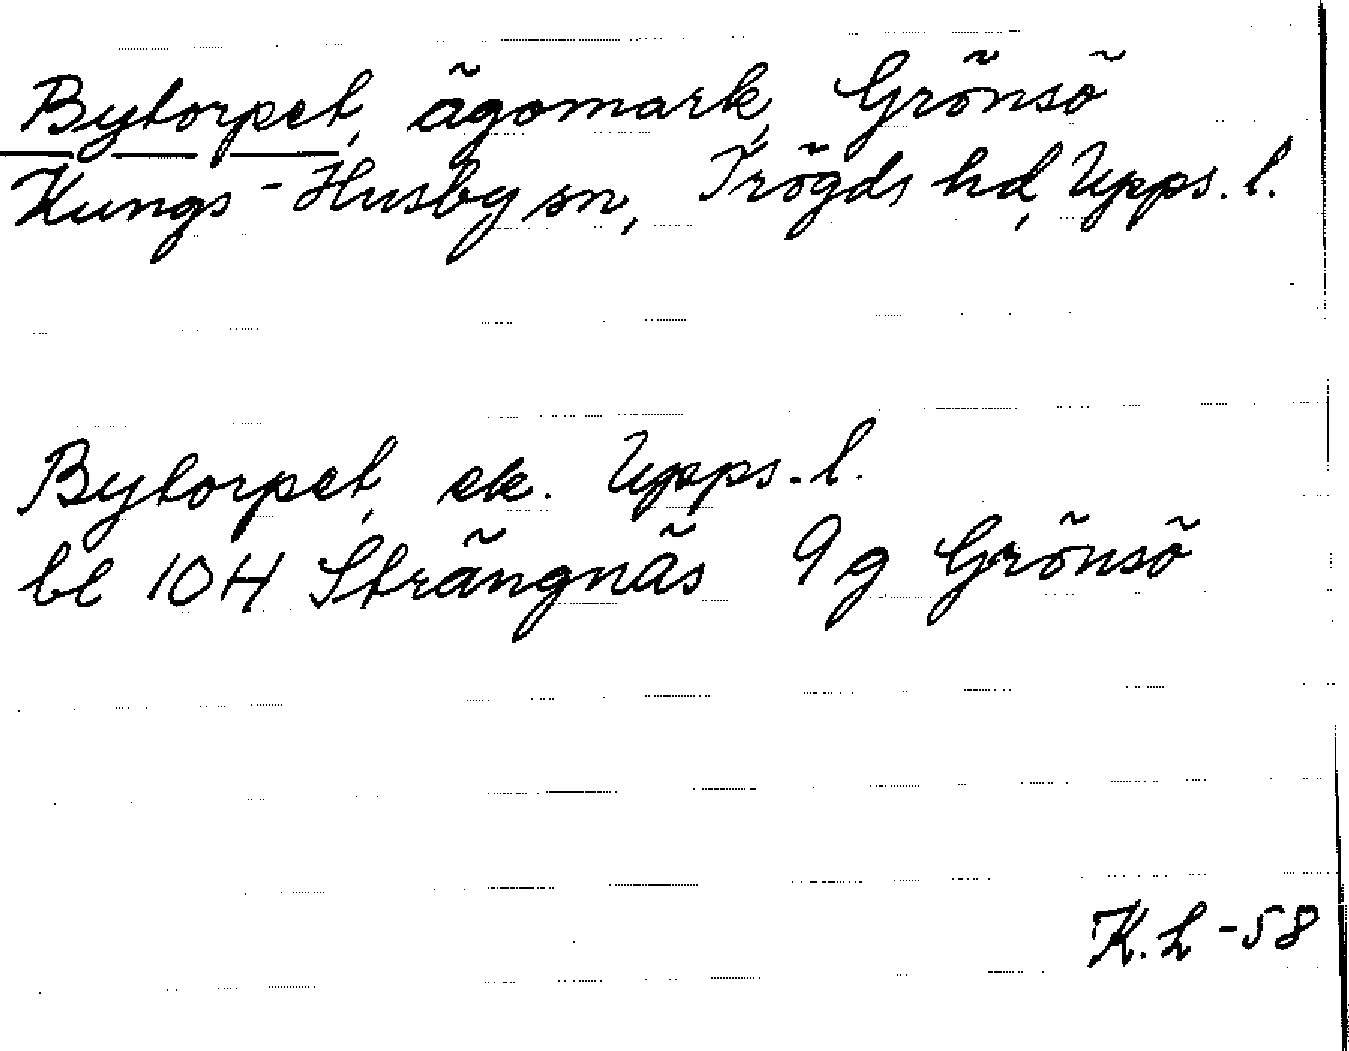 Bytorpet, ägomark, Grönsö
Kungs-Husby sn, Trögds hd, Upps. l.
Bytorpet, ek. Upps. l.
bl 10H Strängnäs 9g Grönsö
K. L -58